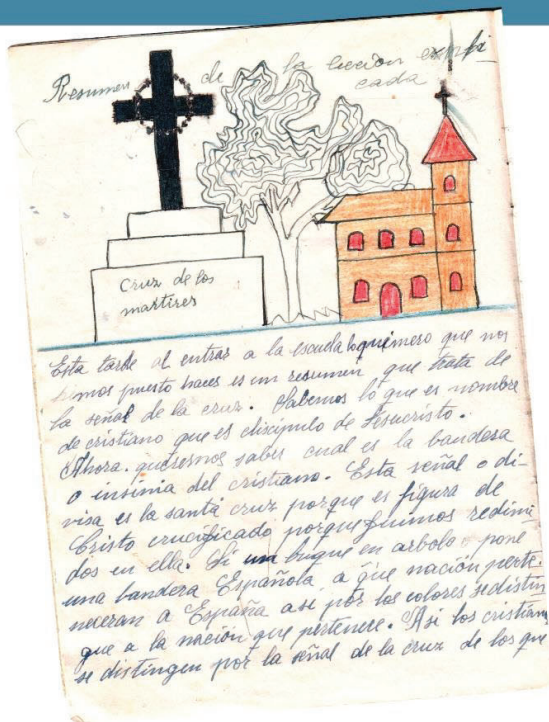 Resumen de la leccion expli
cada
Cruz de los
martires
Esta tarde al entrar a la escuela loquimero que nos
hemos puerto haces es un resumen que trata de
la señal de la cruz. Sabemos lo que es nombre
de cristiano que es discipulo de Jesucristo.
Ahora queresmos saber cual es la bandera
o insinia del cristiano. Esta señal o di-
visa es la santa cruz porque es figura de
Cristo crucificado porque fuimos redimi
dos en ella. Si un buque en arbola o pone
una bandera Española a que nación perte.
neceran a España asi por los colores sedistin
gue a la nación que pertenece. Asi los cristianos
se distingen por la señal de la cruz de los que